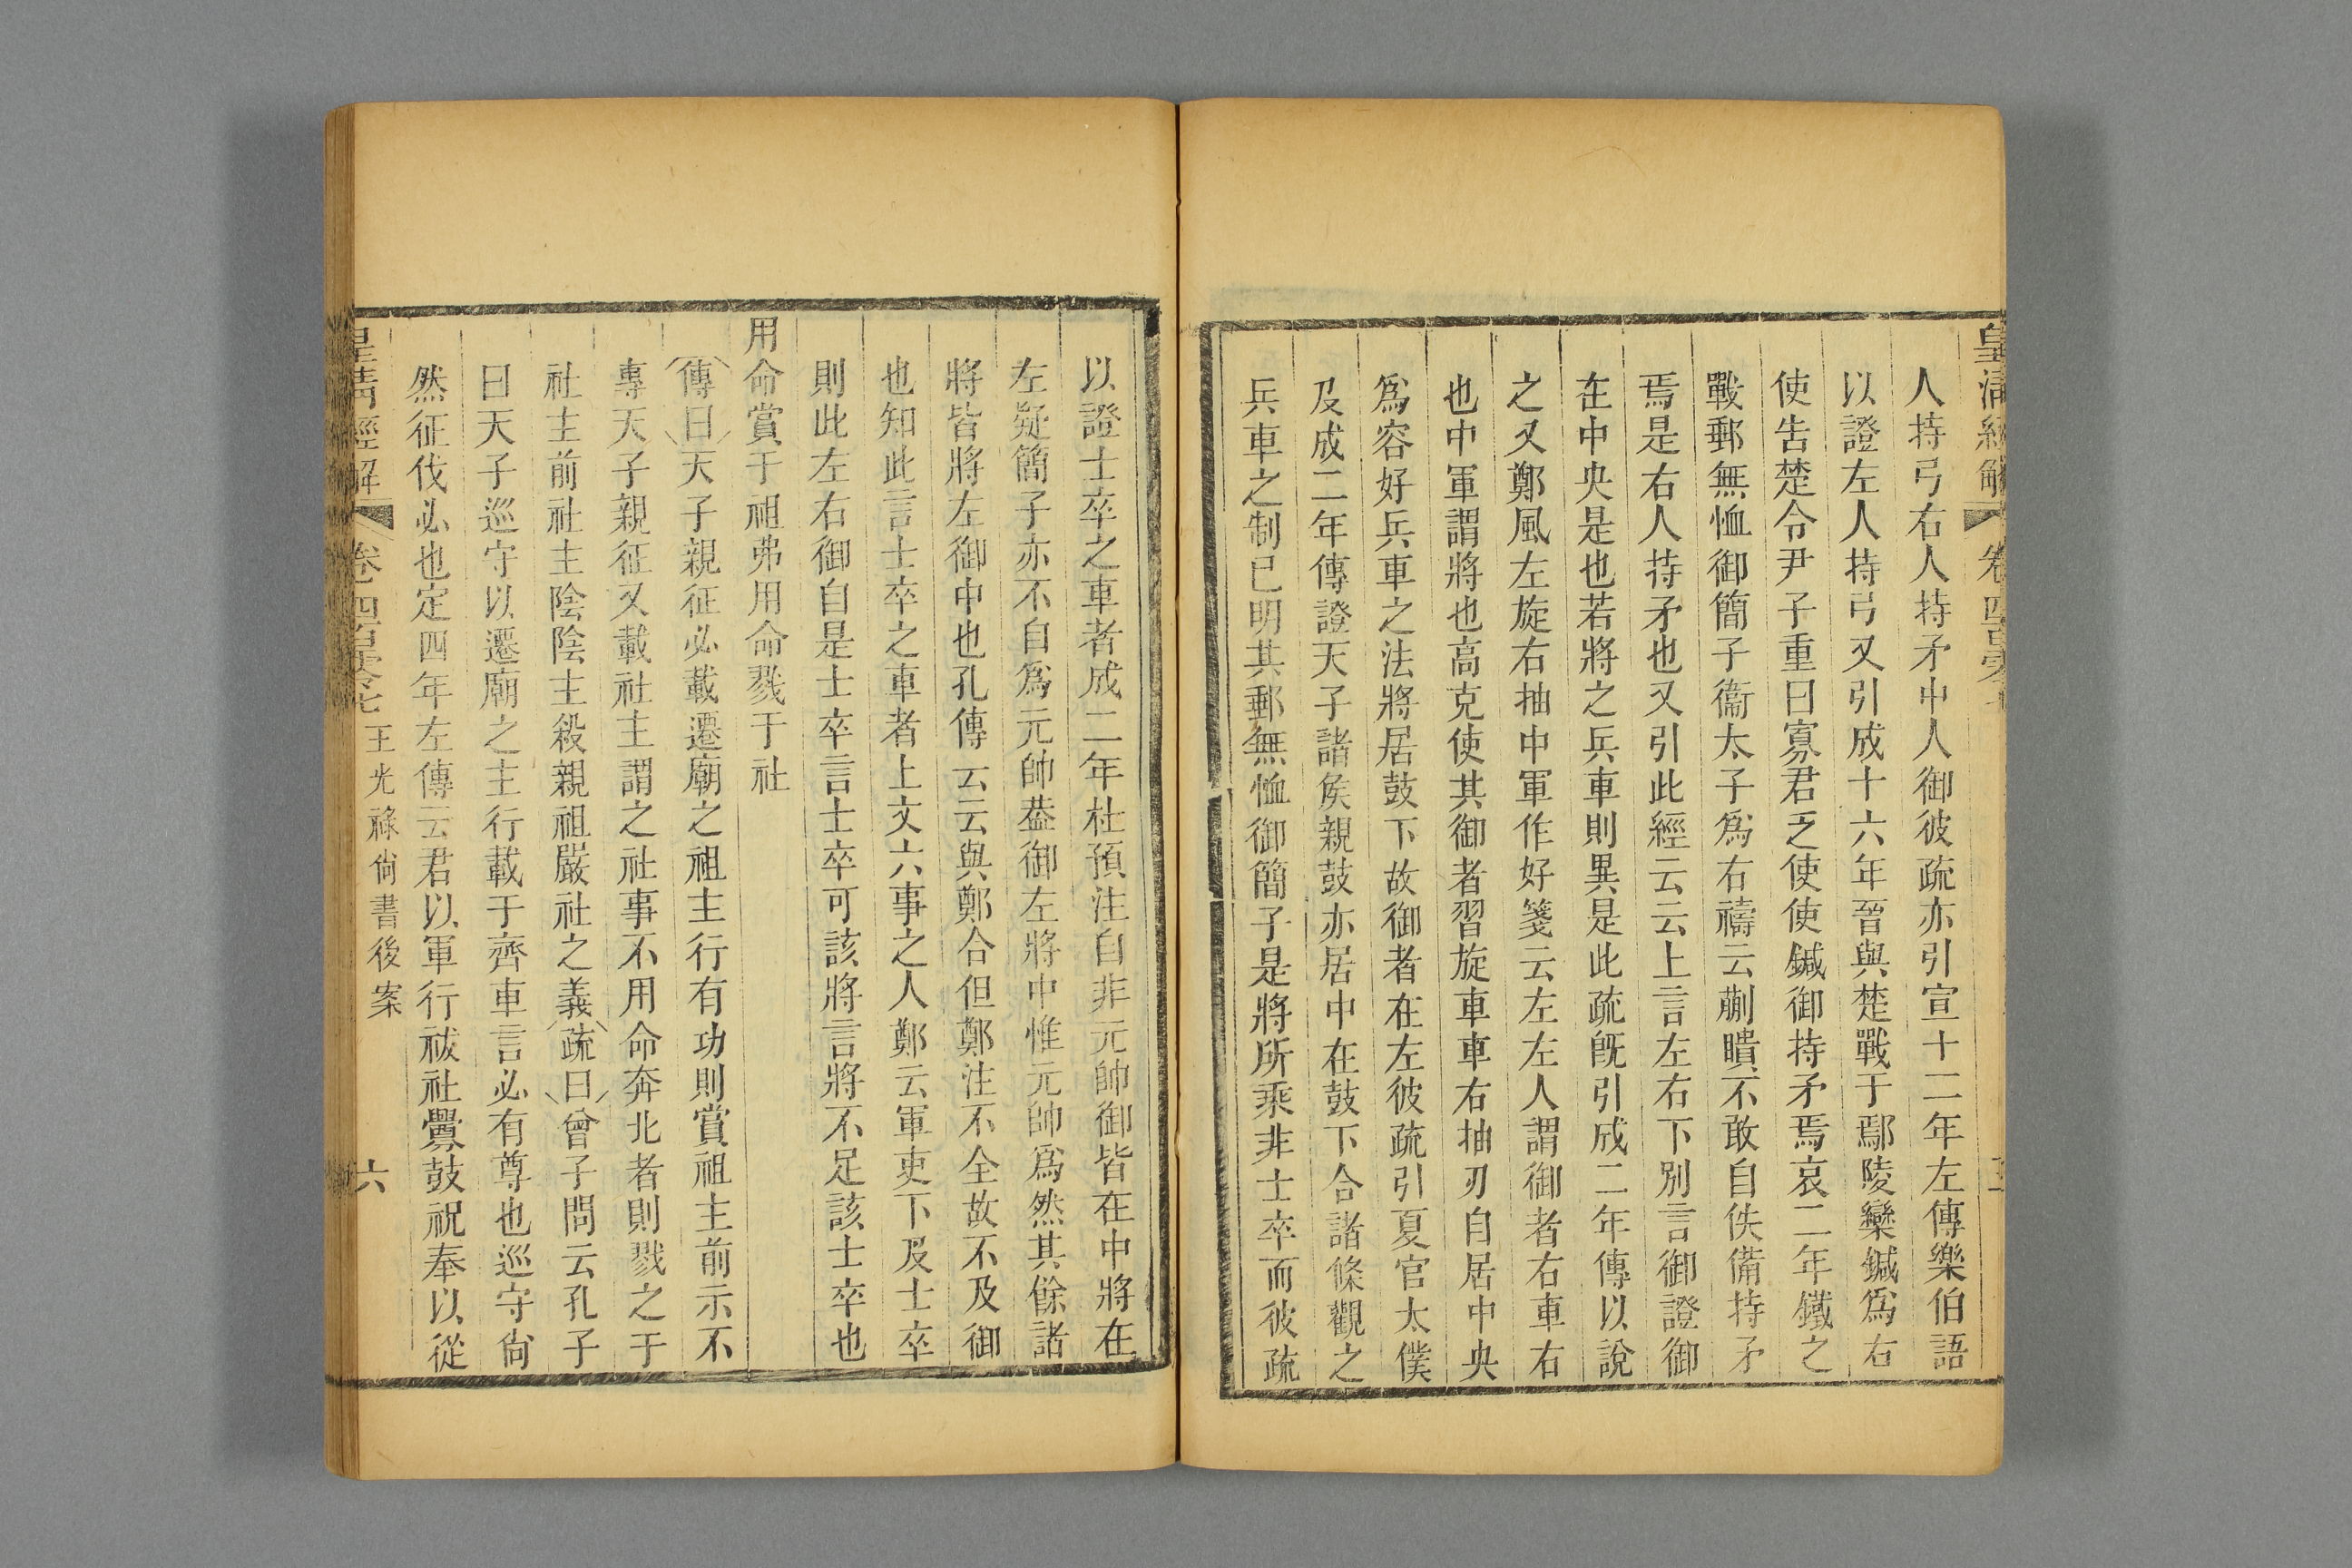 皇清經解 卷四百零七 五
人持弓右人持矛中人御彼疏亦引宣十二年左傳樂伯語
以證左人持弓又引成十六年晉與楚戰于鄢陵欒鍼爲右
使告楚令尹子重曰寡君乏使使鍼御持矛焉哀二年鐵之
戰郵無恤御簡子衞太子爲右禱云蒯聵不敢自佚備持矛
焉是右人持矛也又引此經云云上言左右下別言御證御
在中央是也若將之兵車則異是此疏旣引成二年傳以說
之又鄭風左旋右抽中軍作好箋云左左人謂御者右車右
也中軍謂將也高克使其御者習旋車車右抽刃自居中央
爲容好兵車之法將居鼓下故御者在左彼疏引夏官太僕
及成二年傳證天子諸矦親鼓亦居中在鼓下合諸條觀之
兵車之制已明其郵無恤御簡子是將所乘非士卒而彼疏
以證士卒之車者成二年杜預注自非元帥御皆在中將在
左疑簡子亦不自爲元帥葢御左將中惟元帥爲然其餘諸
將皆將左御中也孔傳云云與鄭合但鄭注不全故不及御
也知此言士卒之車者上文六事之人鄭云軍吏下及士卒
則此左右御自是士卒言士卒可該將言將不足該士卒也
用命賞于祖弗用命戮于社
傳曰天子親征必載遷廟之祖主行有功則賞祖主前示不
專天子親征又載社主謂之社事不用命奔北者則戮之于
社主前社主陰陰主殺親祖嚴社之義疏曰曾子問云孔子
曰天子巡守以遷廟之主行載于齊車言必有尊也巡守尙
然征伐必也定四年左傳云君以軍行祓社釁鼓祝奉以從
皇清經解 卷四百零七 王光祿尙書後案 六